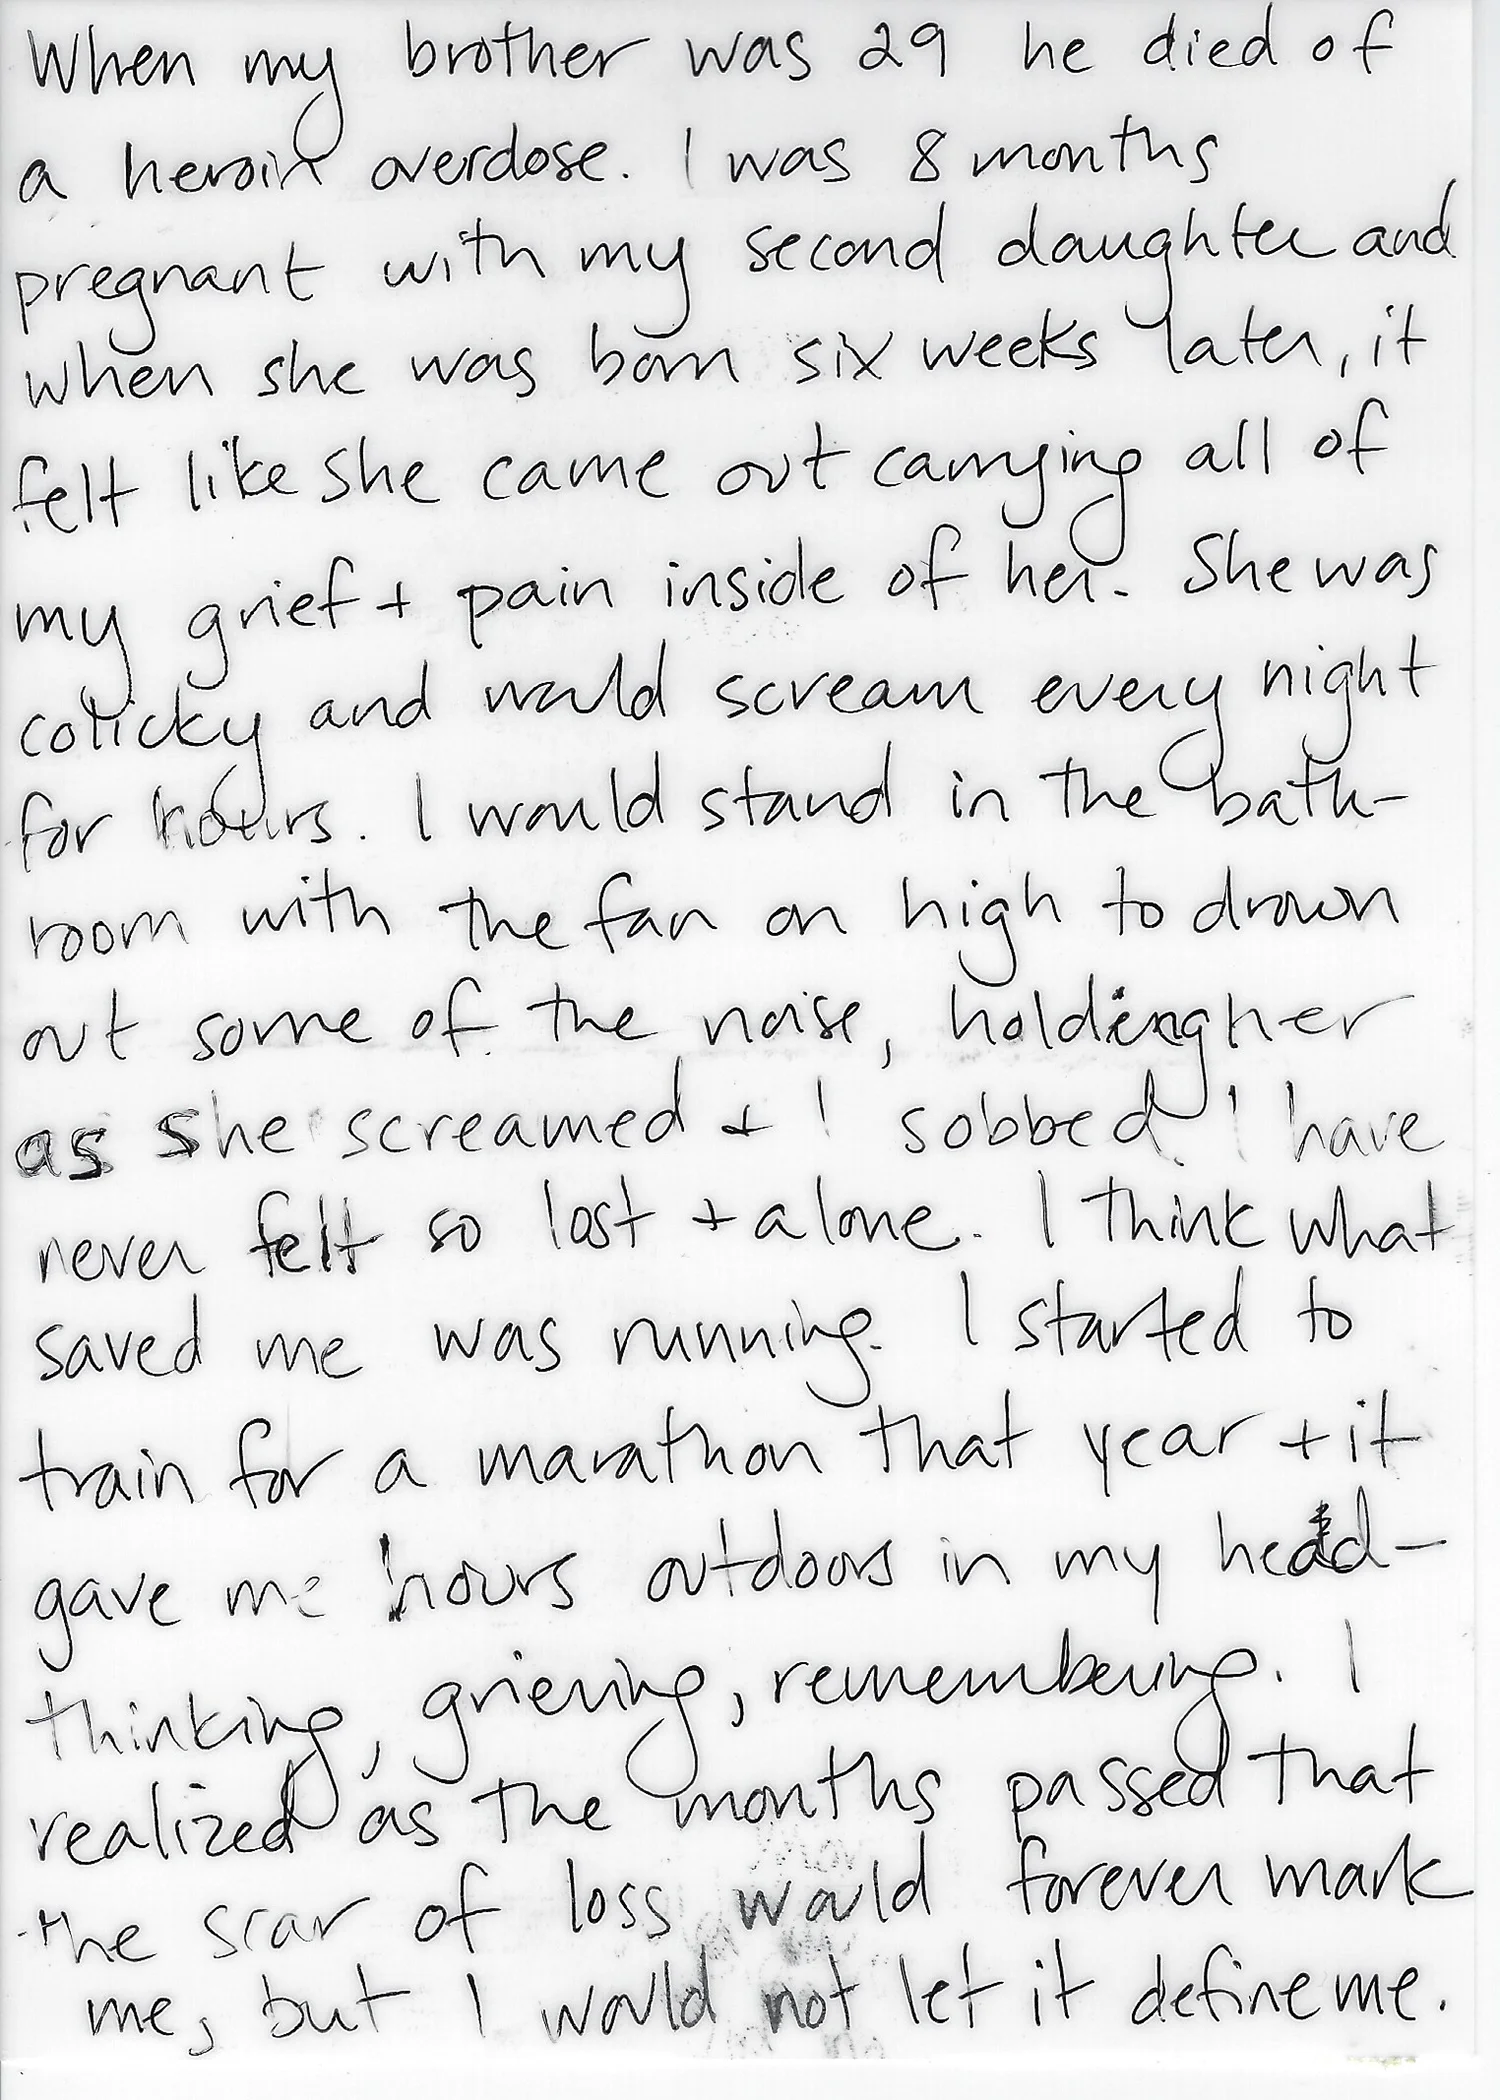 When my brother was 29 he died of
a heroin overdose. I was 8 months
pregnant with my second daughter and
when she was born six weeks later, it
felt like she came out carrying all of
my grief + pain inside of her. She was
colicky and would scream every night
for hours. I would stand in the bath-
room with the fan on high to drown
out some of the noise, holding her
as she screamed + I sobbed. I have
never felt so lost + alone. I think what
saved me was running. I started to
train for a marathon that year + it
gave me hours outdoors in my head-
thinking, grieving, remembering. I
realized as the months passed that
the scar of loss would forever mark
me, but I would not let it define me.